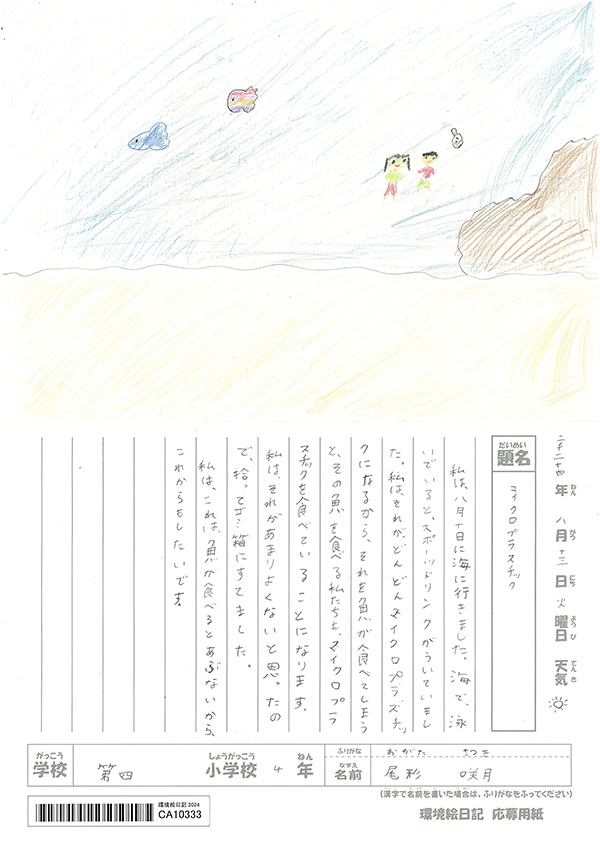 二千二十四年 八月十三日 火曜日 天気
ねん がつ にち ようび てんき
だいめい
題名
マイクロプラスチック
私は、八月十日に海に行きました。海で、泳
いでいると、スポーツドリンクがういていまし
た。私はそれが、どんどんマイクロプラスチッ
クになるから、それを魚が食べてしまう
と、その魚を食べる私たちも、マイクロプラ
スチックを食べていることになります。
私は、それがあまりよくないと思ったの
で、拾ってゴミ箱にすてました。
私は、これは、魚が食べるとあぶないから、
これからもしたいです。
がっこう しょうがっこう ねん ふりがな おがた さつき
学校 第四 小学校 4 年 なまえ 名前 尾形 咲月
(漢字で名前を書いた場合は、ふりがなをふってください)
環境絵日記 2024
CA10333
環境絵日記 応募用紙